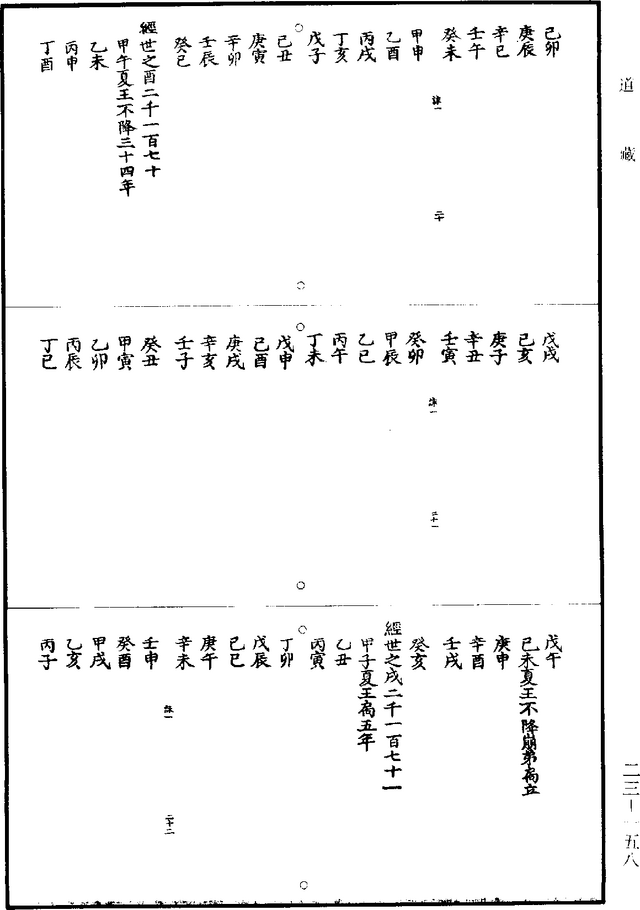 道藏
己卯
庚辰
辛巳
壬午
癸未
諫一
二十
甲申
乙酉
丙戌
丁亥
戊子
己丑
庚寅
辛卯
壬辰
癸巳
經世之酉二千一百七十
甲午夏王不降三十四年
乙未
丙申
丁酉
戊戌
己亥
庚子
辛丑
壬寅
癸卯
諫一
二十一
甲辰
乙巳
丙午
丁未
戊申
己酉
庚戌
辛亥
壬子
癸丑
甲寅
乙卯
丙辰
丁巳
戊午
己未夏王不降崩弟扃立
庚申
辛酉
壬戌
癸亥
經世之戌二千一百七十一
甲子夏王扃五年
乙丑
丙寅
丁卯
戊辰
己巳
庚午
辛未
諫一
二十二
壬申
癸酉
甲戌
乙亥
丙子
二三—一五八